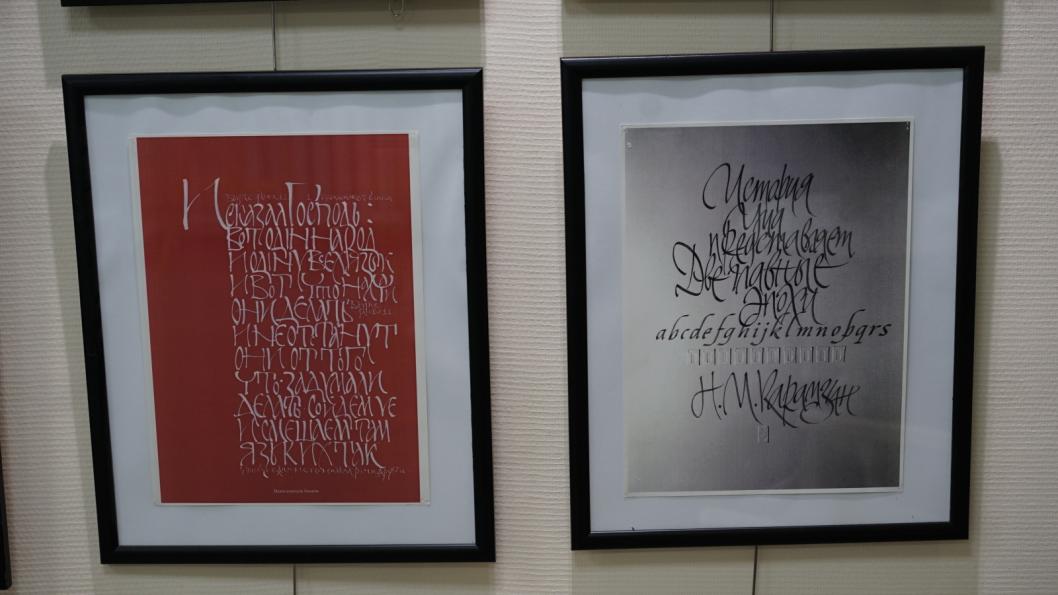 И сказал Господь:
вот один народ
и один у всех язык
и вот что начали
они делать
и не отстанут
они от того
что задумали
делать сойдем же
и смешаем там
язык их так
История
ума
представляет
Две главные
эпохи
abcdefghijklmnobqrs
Н.М.Карамзин